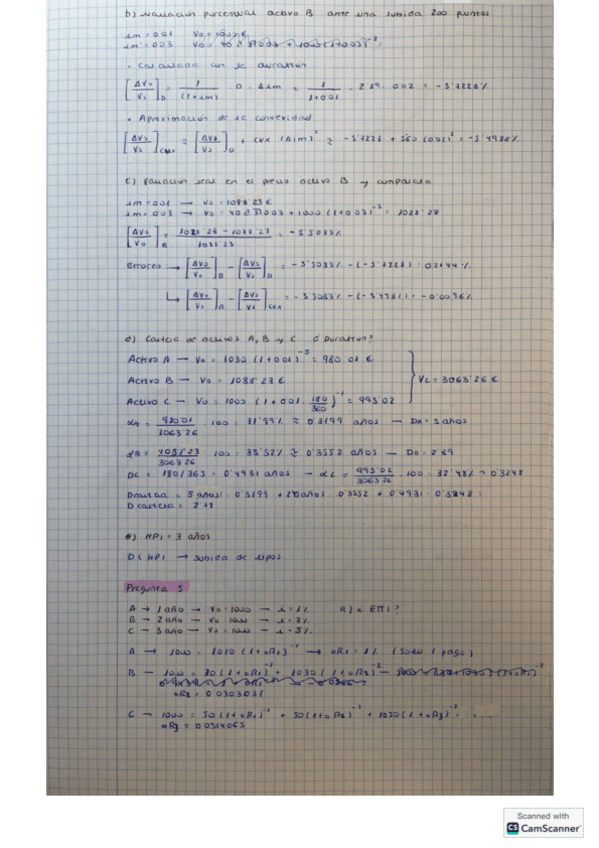 b) Variacion porcentual activo B ante una subida 200 puntos
im = 0'01 V0 = 1088'23 €
im' = 0'03 V0 =
• Calculada con la duration
[ΔV0/V0]D = - 1/(1+im) · D · Δim = - 1/(1+0'01) · 2'89 · 0'02 = -5'7228 %
• Aproximación de la convexidad
[ΔV0/V0]CVX = [ΔV0/V0]D + CVX (Δim)² = -5'7228 + 560 (0'02)² = -5'4988 %
c) Variacion real en el precio activo B y comparala
im = 0'01 → V0 = 1088'23 €
im = 0'03 → V0 = 40 a3┐0'03 + 1000 (1+0'03)⁻³ = 1028'28
[ΔV0/V0]R = (1028'28 - 1088'23)/1088'23 = -5'5083 %
Errores → [ΔV0/V0]R - [ΔV0/V0]D = -5'5083 % - (-5'7228) = 0'2144 %
↳ [ΔV0/V0]R - [ΔV0/V0]CVX = -5'5083 % - (-5'4988) = -0'0096 %
d) Cartera de activos A, B y C ¿ Duration?
Activo A → V0 = 1030 (1+0'01)⁻⁵ = 980'01 €
Activo B → V0 = 1088'23 € VC = 3063'26 €
Activo C → V0 = 1000 (1+0'01 · 180/360)⁻¹ = 995'02
αA = 980'01/3063'26 · 100 = 31'99 % ≈ 0'3199 años → DA = 5 años
αB = 1088'23/3063'26 · 100 = 35'52 % ≈ 0'3552 años → DB = 2'89
DC = 180/365 = 0'4931 años → αC = 995'02/3063'26 · 100 = 32'48 % = 0'3248
D cartera = 5 años · 0'3199 + 2'89 años · 0'3552 + 0'4931 · 0'3248 =
D cartera = 2'78
e) HPI = 3 años
D < HPI → Subida de tipos
Pregunta 5
A → 1 año → V0 = 1000 → i = 1 % a) ¿ ETTI ?
B → 2 año → V0 = 1000 → i = 3 %
C → 3 año → V0 = 1000 → i = 5 %
A → 1000 = 1010 (1+0R1)⁻¹ → 0R1 = 1 % (solo 1 pago)
B → 1000 = 30 (1+0R1)⁻¹ + 1030 (1+0R2)⁻²
0R2 = 0'0303031
C → 1000 = 50 (1+0R1)⁻¹ + 50 (1+0R2)⁻² + 1050 (1+0R3)⁻³
0R3 = 0'0514065
Scanned with
CS CamScanner